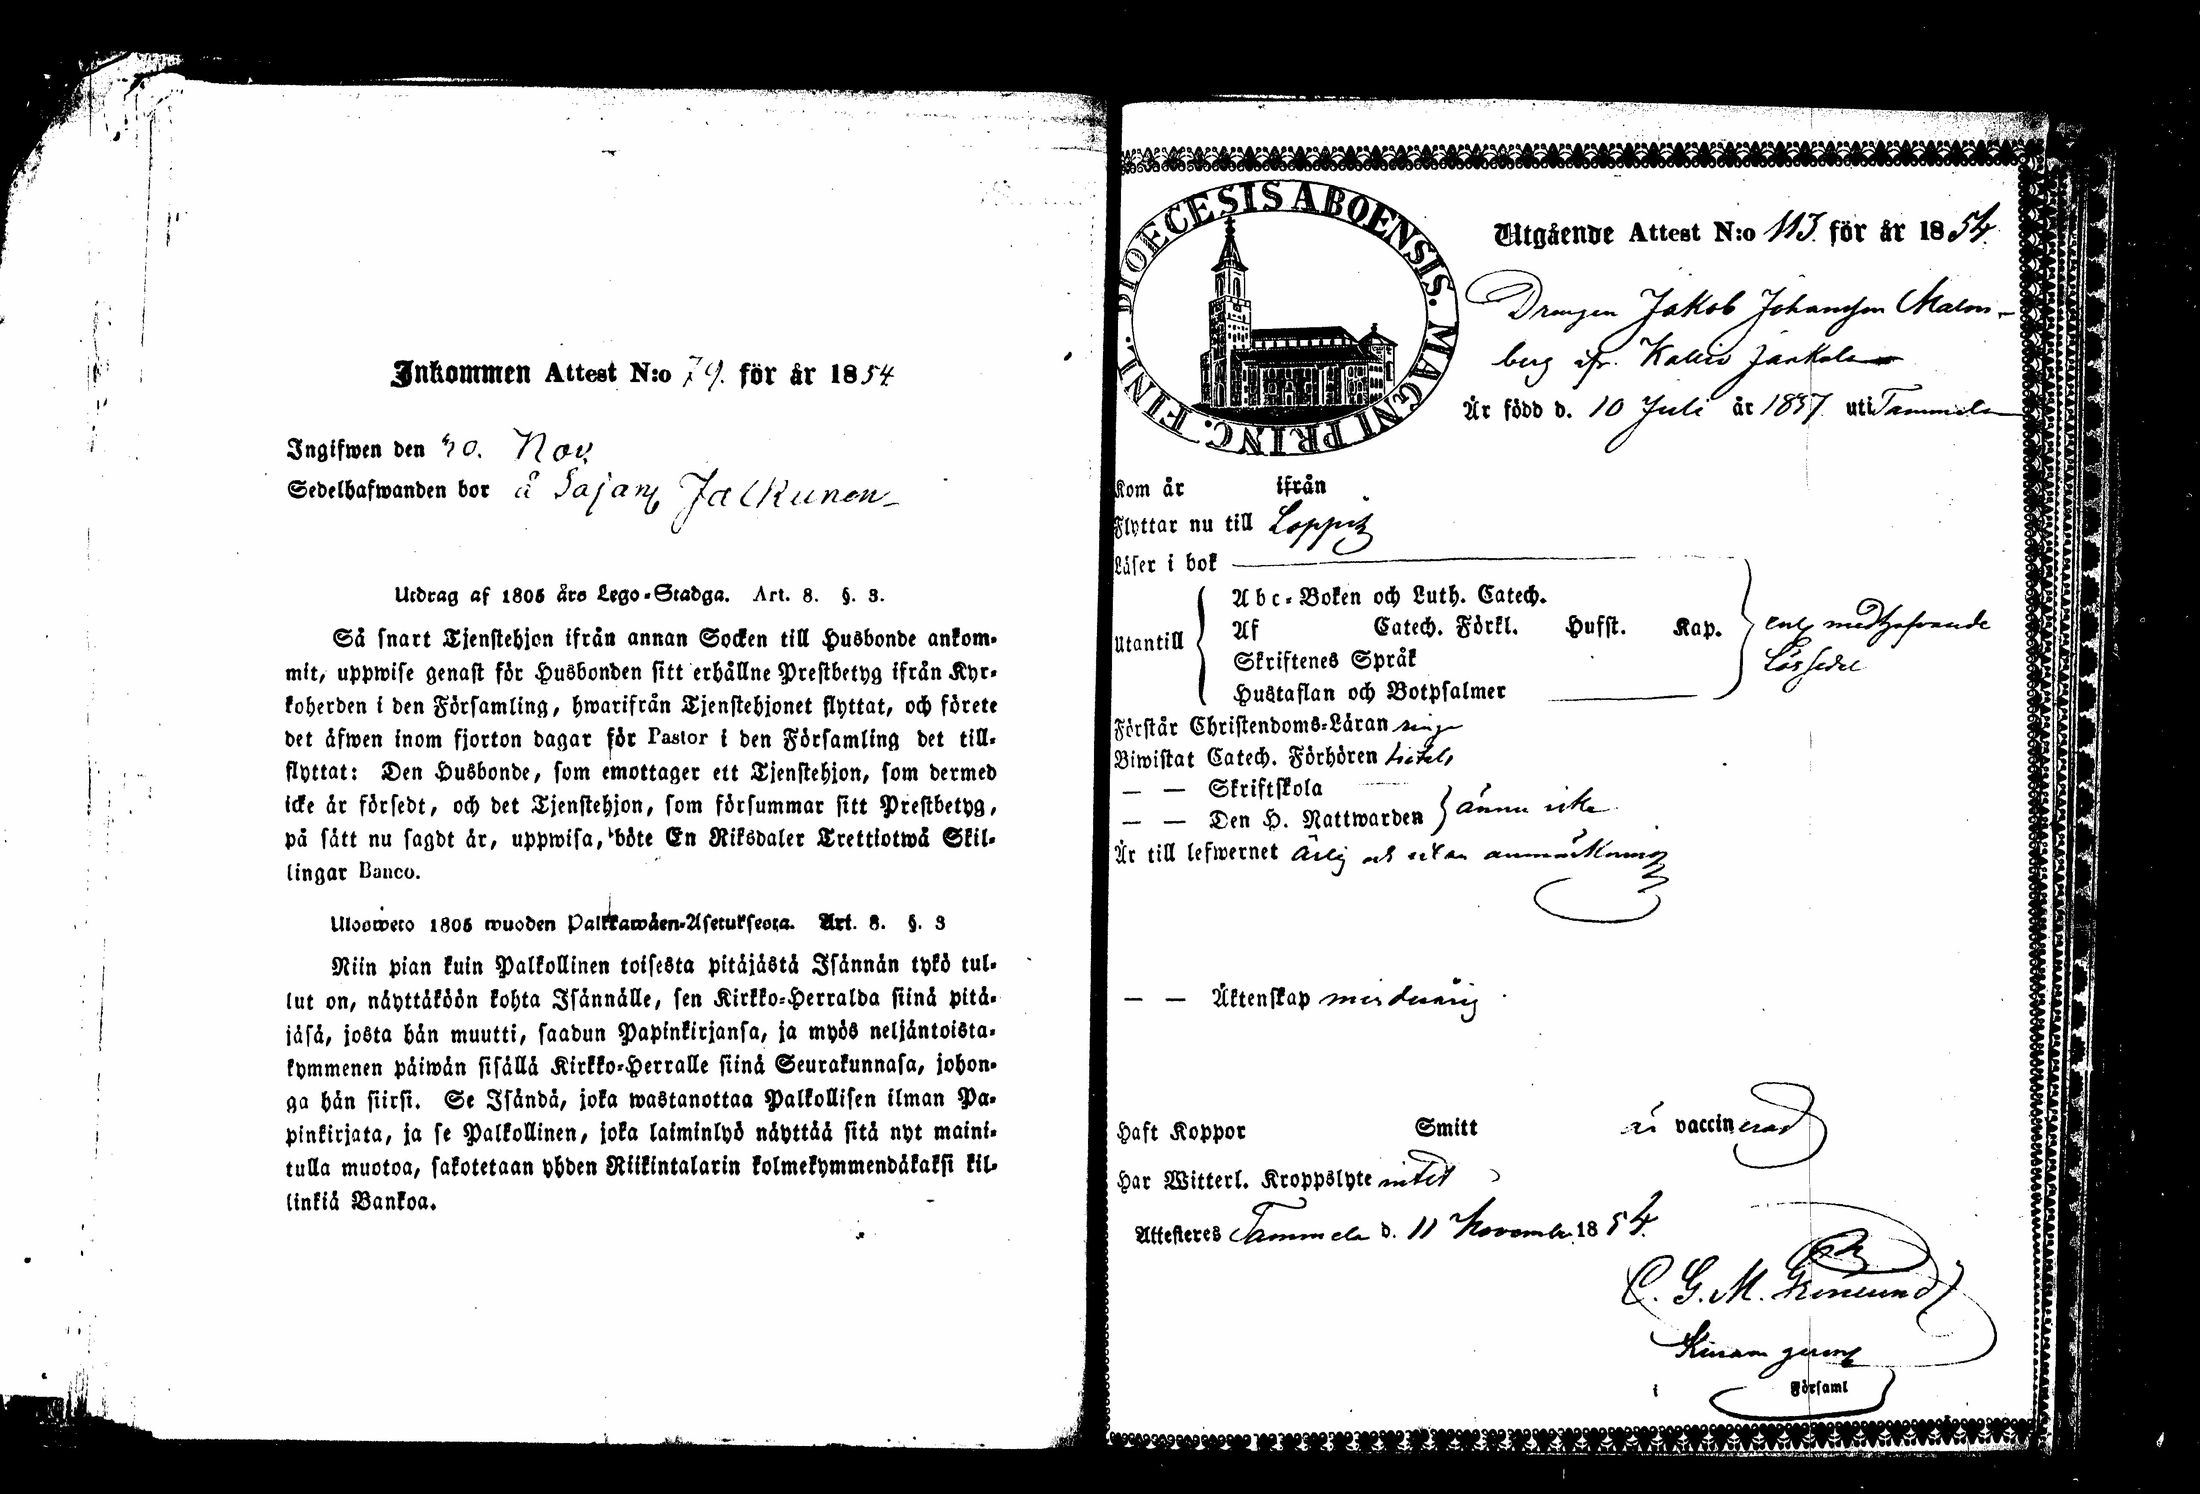 Inkommen Attest N:o 79. för år 1854
Ingifwen den 30. Nov.
Sedelhafwanden bor å Sajan Jalkunen
Utdrag af 1805 års Lego-Stadga. Art. 8. §. 3.
Så snart Tjenstehjon ifrån annan Socken till Husbonde ankom-
mit, uppwise genast för Husbonden sitt erhållne Prestbetyg ifrån Kyr-
koherden i den Församling, hwarifrån Tjenstehjonet flyttat, och förete
det äfwen inom fjorton dagar för Pastor i den Församling det till-
flyttat: Den Husbonde, som emottager ett Tjenstehjon, som dermed
icke är försedt, och det Tjenstehjon, som försummar sitt Prestbetyg,
på sätt nu sagdt är, uppwisa, böte En Riksdaler Trettiotwå Skil-
lingar Banco.
Ulosweto 1805 wuoden Palkkawäen-Asetuksesta. Art. 8. §. 3
Niin pian kuin Palkollinen toisesta pitäjästä Isännän tykö tul-
lut on, näyttäköön kohta Isännälle, sen Kirkko-Herralda siinä pitä-
jäsä, josta hän muutti, saadun Papinkirjansa, ja myös neljäntoista-
kymmenen päiwän sisällä Kirkko-Herralle siinä Seurakunnasa, johon-
ga hän siirsi. Se Isändä, joka wastanottaa Palkollisen ilman Pa-
pinkirjata, ja se Palkollinen, joka laiminlyö näyttää sitä nyt maini-
tulla muotoa, sakotetaan yhden Riikintalarin kolmekymmendäkaksi kil-
linkiä Bankoa.
DIOECESIS ABOENSIS. MAGNI PRINC. FINL.
Utgående Attest N:o 113. för år 1854.
Drengen Jakob Johansson Malm-
berg ifr. Kallio Jaakola
Är född d. 10 Juli år 1837. uti Tammela
Kom år ifrån
Flyttar nu till Loppis
Läser i bok
Utantill
Abc-Boken och Luth. Catech.
Af Catech. Förkl. Hufst. Kap.
Skriftenes Språk
Hustaflan och Botpsalmer
enl. medhafvande
Läs sedel
Förstår Christendoms-Läran ringa
Biwistat Catech. Förhören
— — Skriftskola
— — Den H. Nattwarden
ännu icke
Är till lefwernet ärlig och utan anmärkning
— — Äktenskap minderårig
Haft Koppor Smitt är vaccinerad
Har Witterl. Kroppslyte intet
Attesteres Tammela d. 11 November 1854.
C. G. M.
i Församl